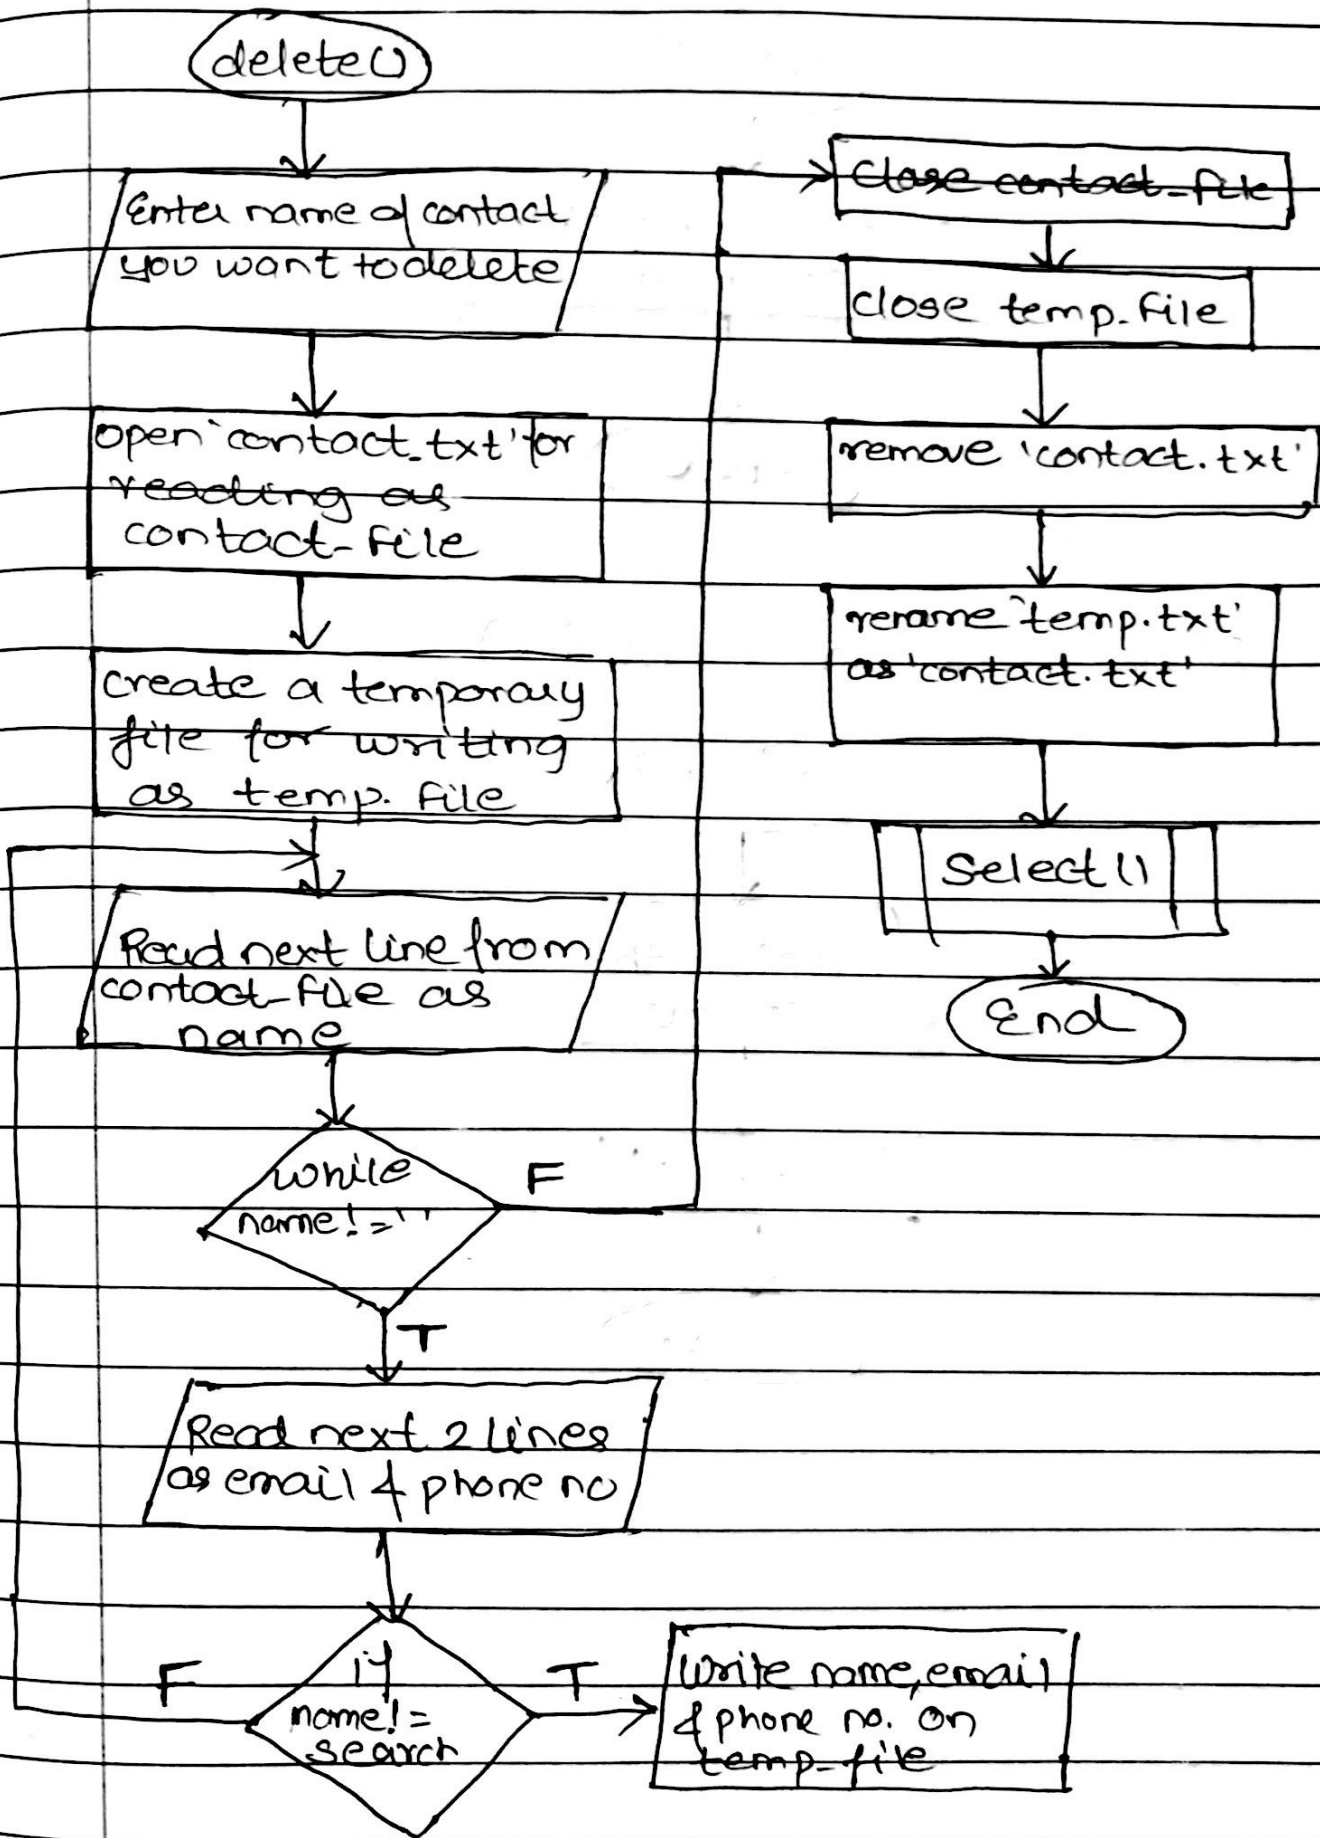 delete()
Enter name of contact
you want to delete
open 'contact.txt' for
reading as
contact-file
create a temporary
file for writing
as temp. file
Read next line from
contact-file as
name
while
name!=''
F
T
Read next 2 lines
as email & phone no
if
name!=
search
F
T
Write name, email
& phone no. on
temp-file
Close contact-file
close temp-file
remove 'contact.txt'
rename 'temp.txt'
as 'contact.txt'
Select()
End